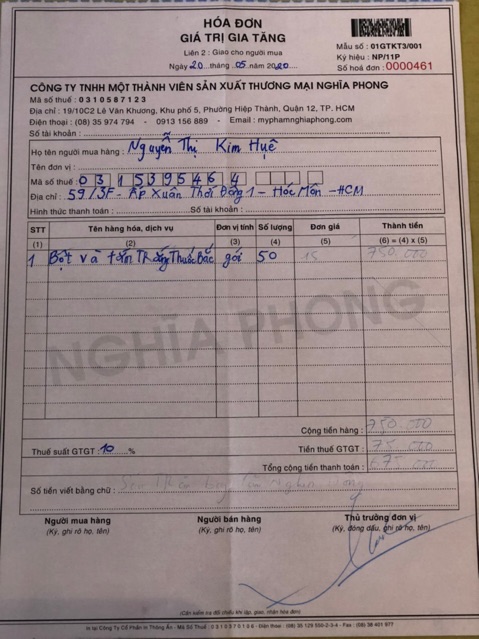 HÓA ĐƠN
GIÁ TRỊ GIA TĂNG
Liên 2 : Giao cho người mua
Ngày 20 tháng 05 năm 2020
Mẫu số : 01GTKT3/001
Ký hiệu : NP/11P
Số hoá đơn : 0000461
CÔNG TY TNHH MỘT THÀNH VIÊN SẢN XUẤT THƯƠNG MẠI NGHĨA PHONG
Mã số thuế : 0310587123
Địa chỉ : 19/10C2 Lê Văn Khương, Khu phố 5, Phường Hiệp Thành, Quận 12, TP. HCM
Điện thoại : (08) 35 974 794 - 0913 156 889 - Email : myphamnghiaphong.com
Số tài khoản :
Họ tên người mua hàng : Nguyễn Thị Kim Huệ
Tên đơn vị :
Mã số thuế : 0315395464
Địa chỉ : 59/3F - Ấp Xuân Thới Đông 1 - Hóc Môn - HCM
Hình thức thanh toán : Số tài khoản :
STT Tên hàng hóa, dịch vụ Đơn vị tính Số lượng Đơn giá Thành tiền
(1) (2) (3) (4) (5) (6) = (4) x (5)
1 Bột và tắm Thuốc Bắc gói 50 15 750.000
NGHĨA PHONG
Cộng tiền hàng : 750.000
Thuế suất GTGT 10 % Tiền thuế GTGT : 75 000
Tổng cộng tiền thanh toán : 000
Số tiền viết bằng chữ :
Người mua hàng Người bán hàng Thủ trưởng đơn vị
(Ký, ghi rõ họ, tên) (Ký, ghi rõ họ, tên) (Ký, đóng dấu, ghi rõ họ, tên)
(Cần kiểm tra đối chiếu khi lập, giao, nhận hóa đơn)